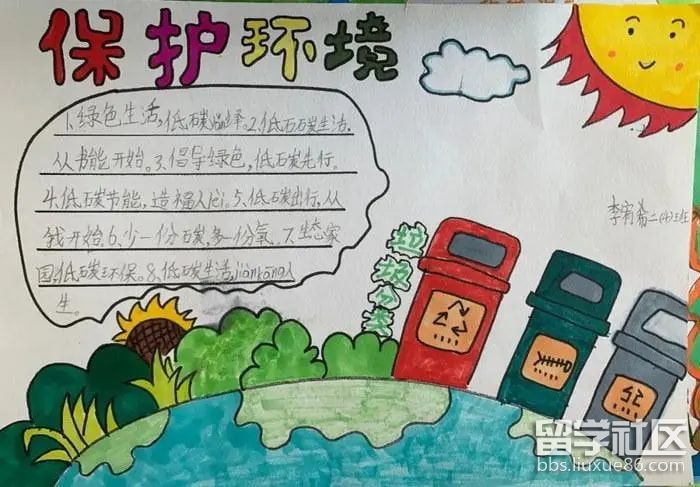 保护环境
1.绿色生活,低碳选择.2.低石炭生活,
从节能开始。3.倡导绿色,低碳先行。
4.低碳节能,造福人们.5.低碳出行,从
我开始.6.少一份碳,多一份氧。7.生态家
园,低碳环保。8.低碳生活,jiànkāng人
生。
垃圾分类
李宥希二(4)班
留学社区
bbs.liuxue86.com